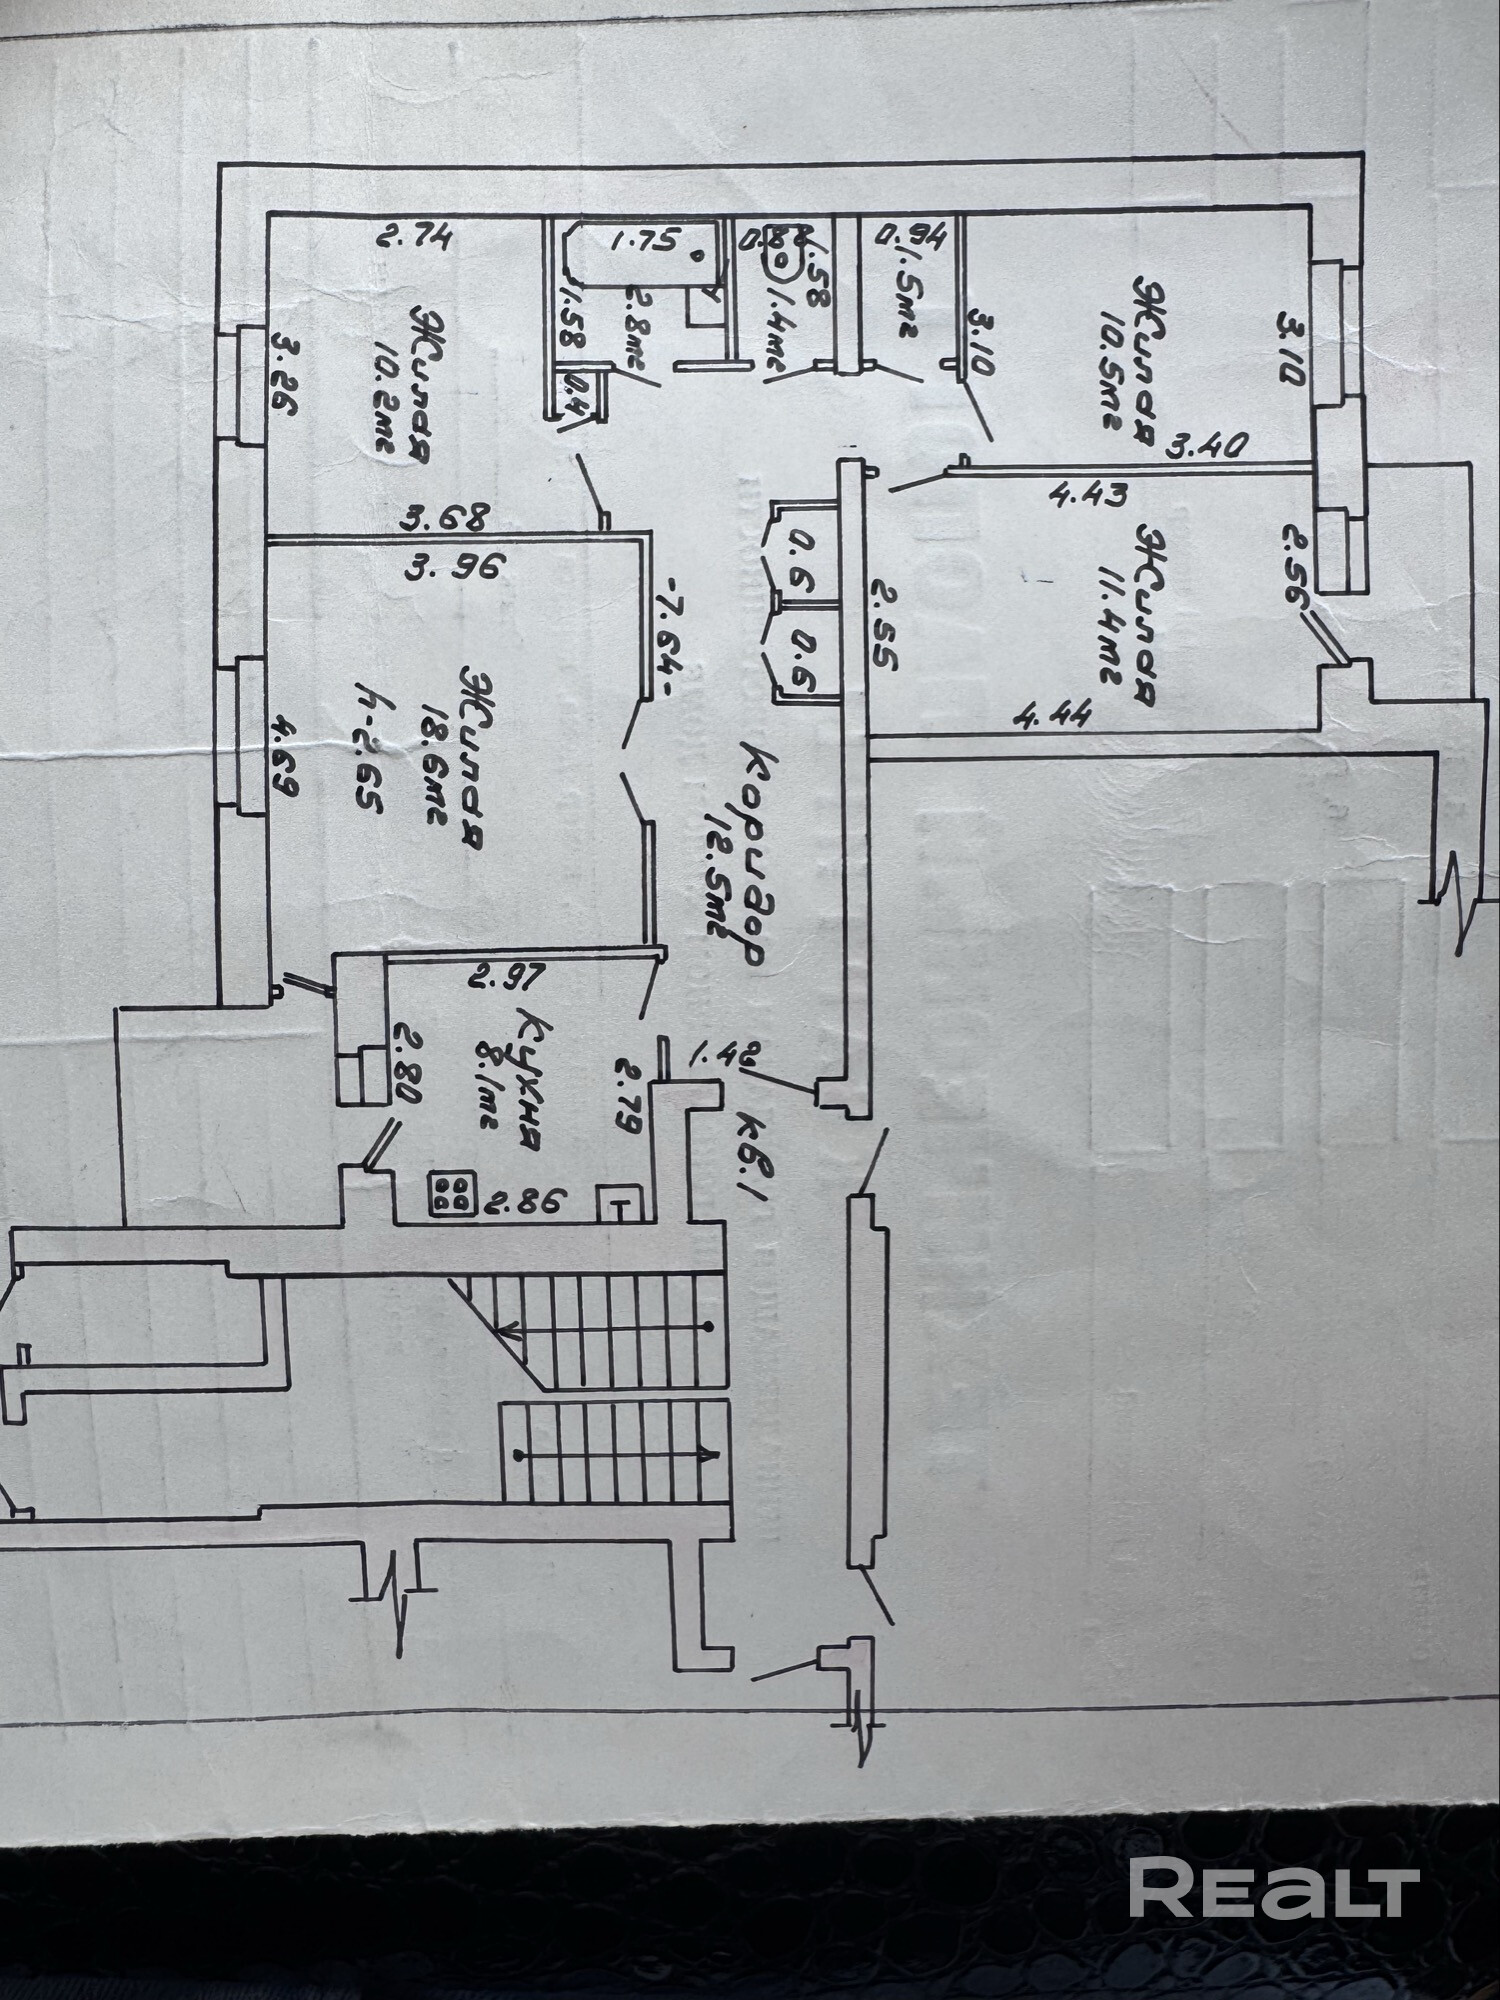 2.74
1.75
0.88
0.94
1.58
1.5м²
3.10
Жилая
10.5м²
3.10
3.26
Жилая
10.2м²
1.58
2.8м²
1.4м²
0.4
3.40
4.43
3.68
3.96
0.6
0.6
2.55
Жилая
11.4м²
2.56
-7.64-
4.44
4.69
Жилая
18.6м²
h-2.65
Коридор
12.5м²
2.97
2.80
Кухня
8.1м²
2.79
1.42
кв.1
2.86
REALT